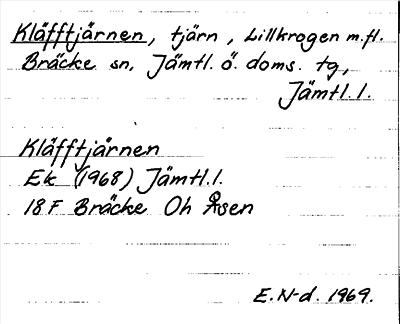 Kläfftjärnen, tjärn, Lillkrogen m.fl.
Bräcke sn, Jämtl. ö. doms. tg,
Jämtl. l.
Kläfftjärnen
Ek (1968) Jämtl. l.
18F Bräcke Oh Åsen
E. N-d. 1969.